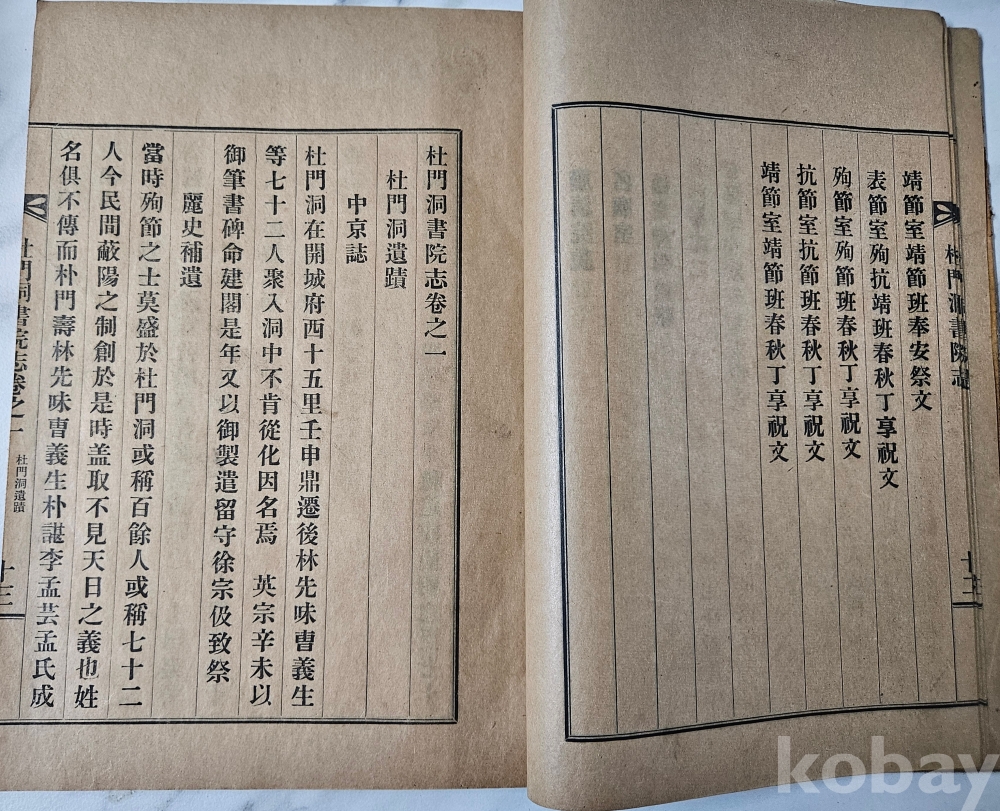 杜門洞書院志
靖節室靖節班奉安祭文
表節室殉抗靖班春秋丁享祝文
殉節室殉節班春秋丁享祝文
抗節室抗節班春秋丁享祝文
靖節室靖節班春秋丁享祝文
十二
杜門洞書院志卷之一
杜門洞遺蹟
中京誌
杜門洞在開城府西十五里壬申鼎遷後林先味曺義生
等七十二人聚入洞中不肯從化因名焉 英宗辛未以
御筆書碑命建閣是年又以御製遣留守徐宗伋致祭
麗史補遺
當時殉節之士莫盛於杜門洞或稱百餘人或稱七十二
人今民間蔽陽之制創於是時盖取不見天日之義也姓
名俱不傳而朴門壽林先味曺義生朴諶李孟芸孟氏成
杜門洞書院志卷之一 杜門洞遺蹟 十三
kobay